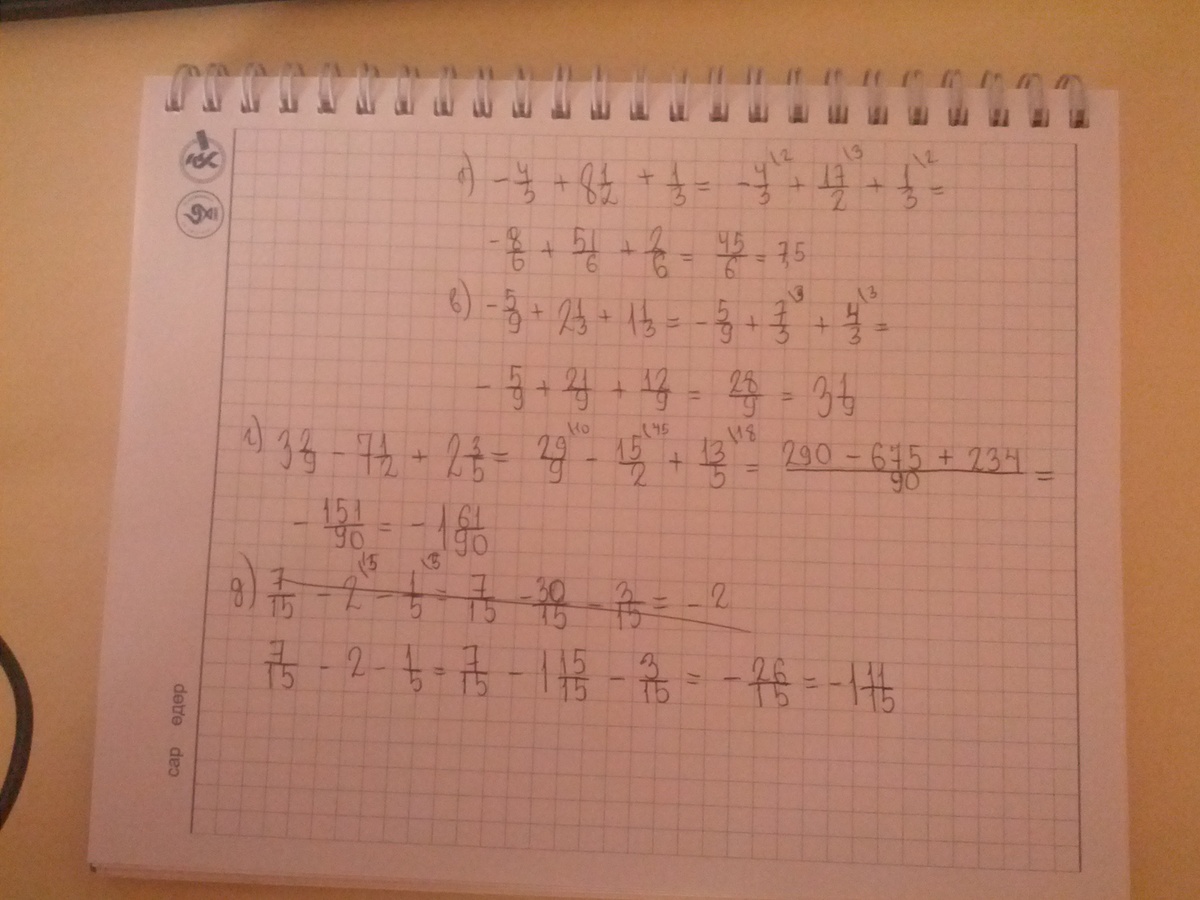 б) -4/3 + 8 1/2 + 1/3 = -4/3\2 + 17/2\3 + 1/3\2 =
-8/6 + 51/6 + 2/6 = 45/6 = 7,5
в) -5/9 + 2 1/3 + 1 1/3 = -5/9 + 7/3\3 + 4/3\3 =
-5/9 + 21/9 + 12/9 = 28/9 = 3 1/9
г) 3 2/9 - 7 1/2 + 2 3/5 = 29/9\10 - 15/2\45 + 13/5\18 = 290 - 675 + 234/90 =
-151/90 = -1 61/90
д) 7/15 - 2\15 - 1/5\3 = 7/15 - 30/15 - 3/15 = -2
7/15 - 2 - 1/5 = 7/15 - 1 15/15 - 3/15 = -26/15 = -1 11/15
сар өдөр